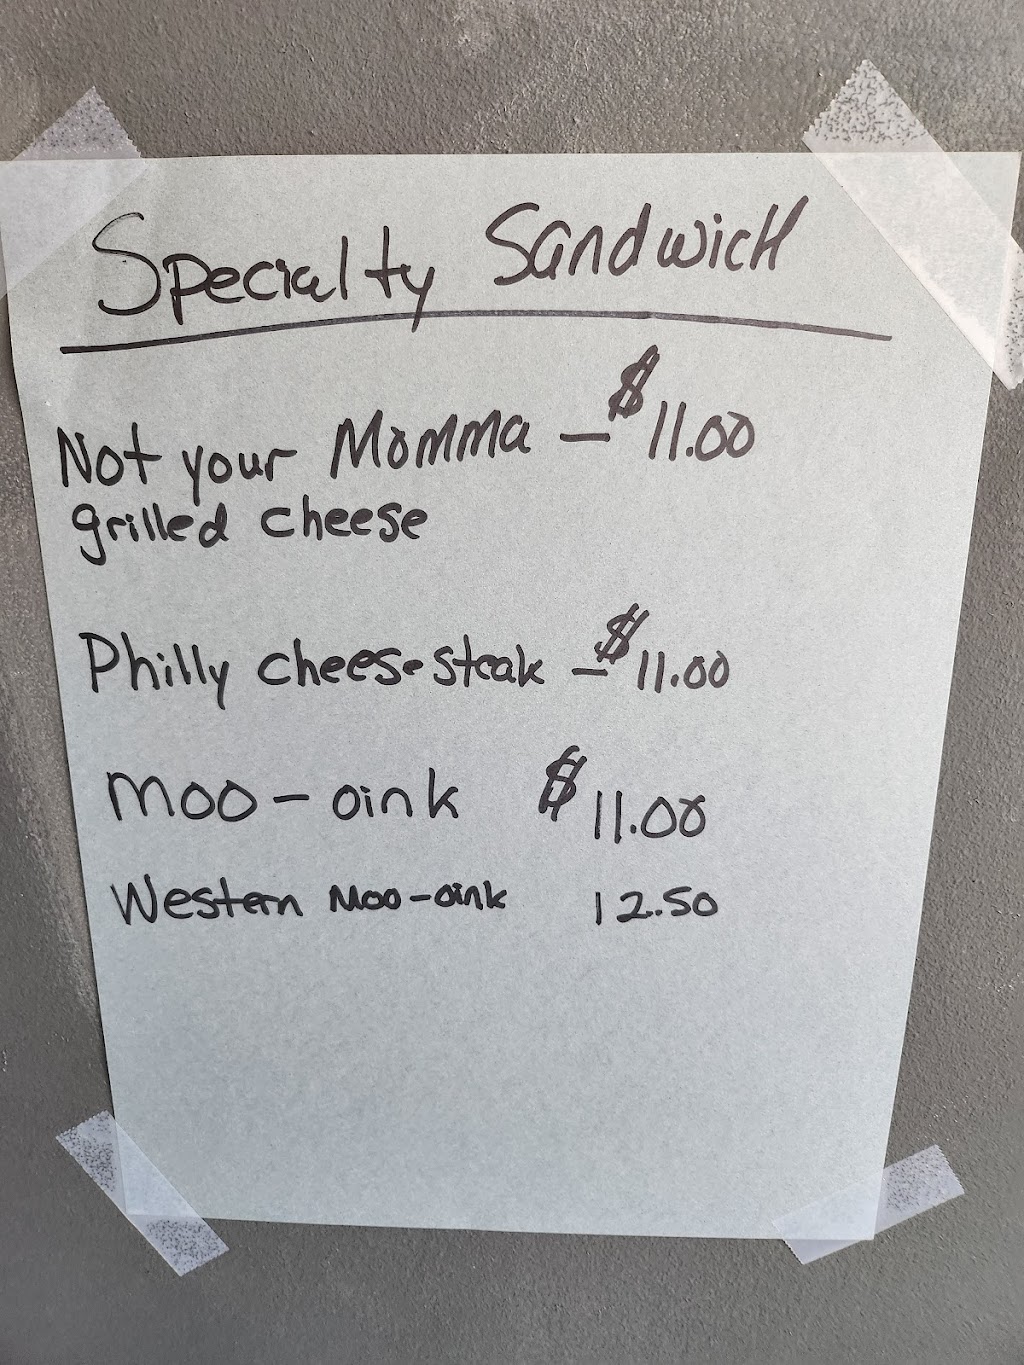 Specialty Sandwich
Not your Momma - $11.00
grilled cheese
Philly cheesesteak - $11.00
Moo-oink $11.00
Western Moo-oink 12.50